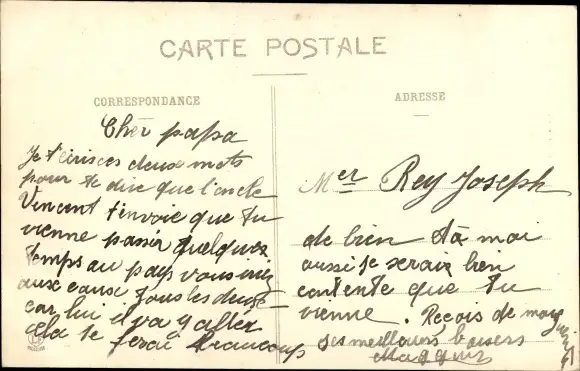 CARTE POSTALE
CORRESPONDANCE
ADRESSE
Cher papa
Je t'ecris ces deux mots
pour te dire que l'oncle
Vincent t'envoie que tu
vienne passer quelques
temps au pays vous iriez
aux eaux tous les deux
car lui il va y aller
cela te ferai beaucoup
Mer Rey Joseph
de bien et à moi
aussi je serais bien
contente que tu
vienne. Reçois de moi
ses meilleurs baisers